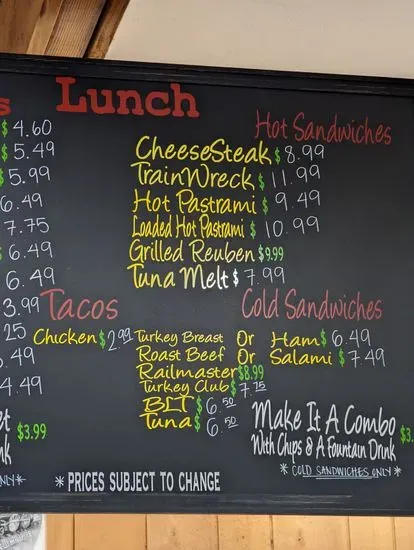 s
$4.60
$5.49
$5.99
6.49
7.75
$6.49
6.49
3.99
25
.49
4.49
et $3.99
nk
NLY*
Lunch
Hot Sandwiches
CheeseSteak $8.99
TrainWreck $11.99
Hot Pastrami $9.49
Loaded Hot Pastrami $10.99
Grilled Reuben $9.99
Tuna Melt $7.99
Tacos
Chicken $2.99
Cold Sandwiches
Turkey Breast Or Ham $6.49
Roast Beef Or Salami $7.49
Railmaster $8.99
Turkey Club $7.75
BLT $6.50
Tuna $6.50
Make It A Combo $3.
With Chips & A Fountain Drink
*COLD SANDWICHES ONLY*
*PRICES SUBJECT TO CHANGE